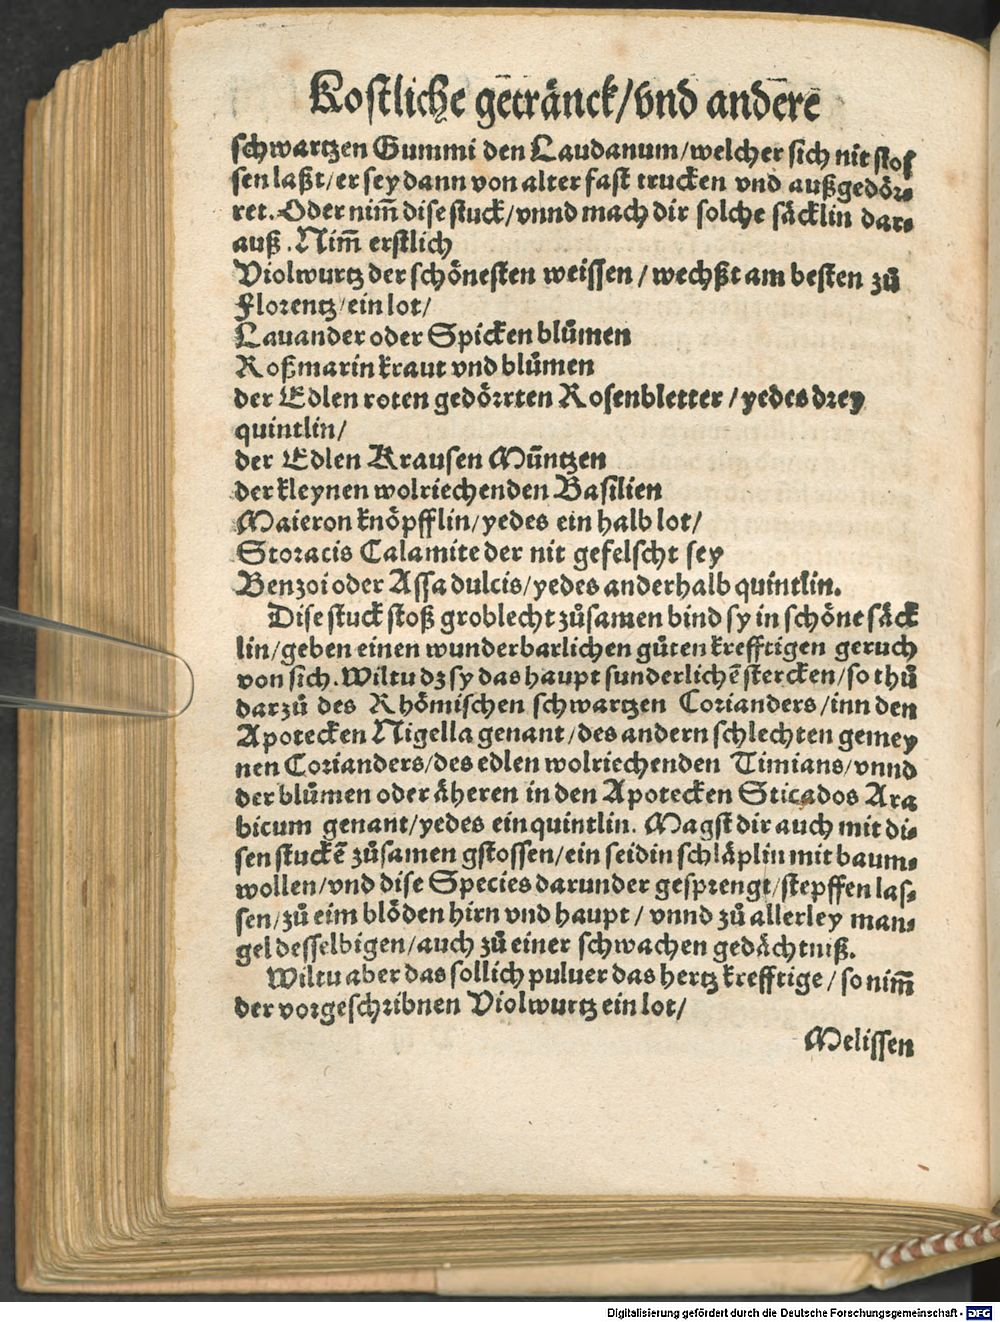 Kostliche getränck/vnd anderē
schwartzen Gummi den Laudanum/welcher sich nit stos
sen laßt/er sey dann von alter fast trucken vnd außgedör⸗
ret. Oder nim̃ dise stuck/vnnd mach dir solche säcklin dar⸗
auß. Nim̃ erstlich
Violwurtz der schönesten weissen/wechßt am besten zů
Florentz/ein lot/
Lauander oder Spicken blůmen
Roßmarin kraut vnd blůmen
der Edlen roten gedörrten Rosenbletter/yedes drey
quintlin/
der Edlen Krausen Müntzen
der kleynen wolriechenden Basilien
Maieron knöpfflin/yedes ein halb lot/
Storacis Calamite der nit gefelscht sey
Benzoi oder Assa dulcis/yedes anderhalb quintlin.
Dise stuck stoß groblecht zůsamen bind sy in schöne säck
lin/geben einen wunderbarlichen gůten krefftigen geruch
von sich. Wiltu dz sy das haupt sunderlichē stercken/so thů
darzů des Rhömischen schwartzen Corianders/inn den
Apotecken Nigella genant/des andern schlechten gemey
nen Corianders/des edlen wolriechenden Timians/vnnd
der blůmen oder äheren in den Apotecken Sticados Ara
bicum genant/yedes ein quintlin. Magst dir auch mit di⸗
sen stuckē zůsamen gstossen/ein seidin schläplin mit baum⸗
wollen/vnd dise Species darunder gesprengt/stepffen las⸗
sen/zů eim blöden hirn vnd haupt/vnnd zů allerley man⸗
gel desselbigen/auch zů einer schwachen gedächtniß.
Wiltu aber das sollich puluer das hertz krefftige/so nim̃
der vorgeschribnen Violwurtz ein lot/
Melissen
Digitalisierung gefördert durch die Deutsche Forschungsgemeinschaft - DFG